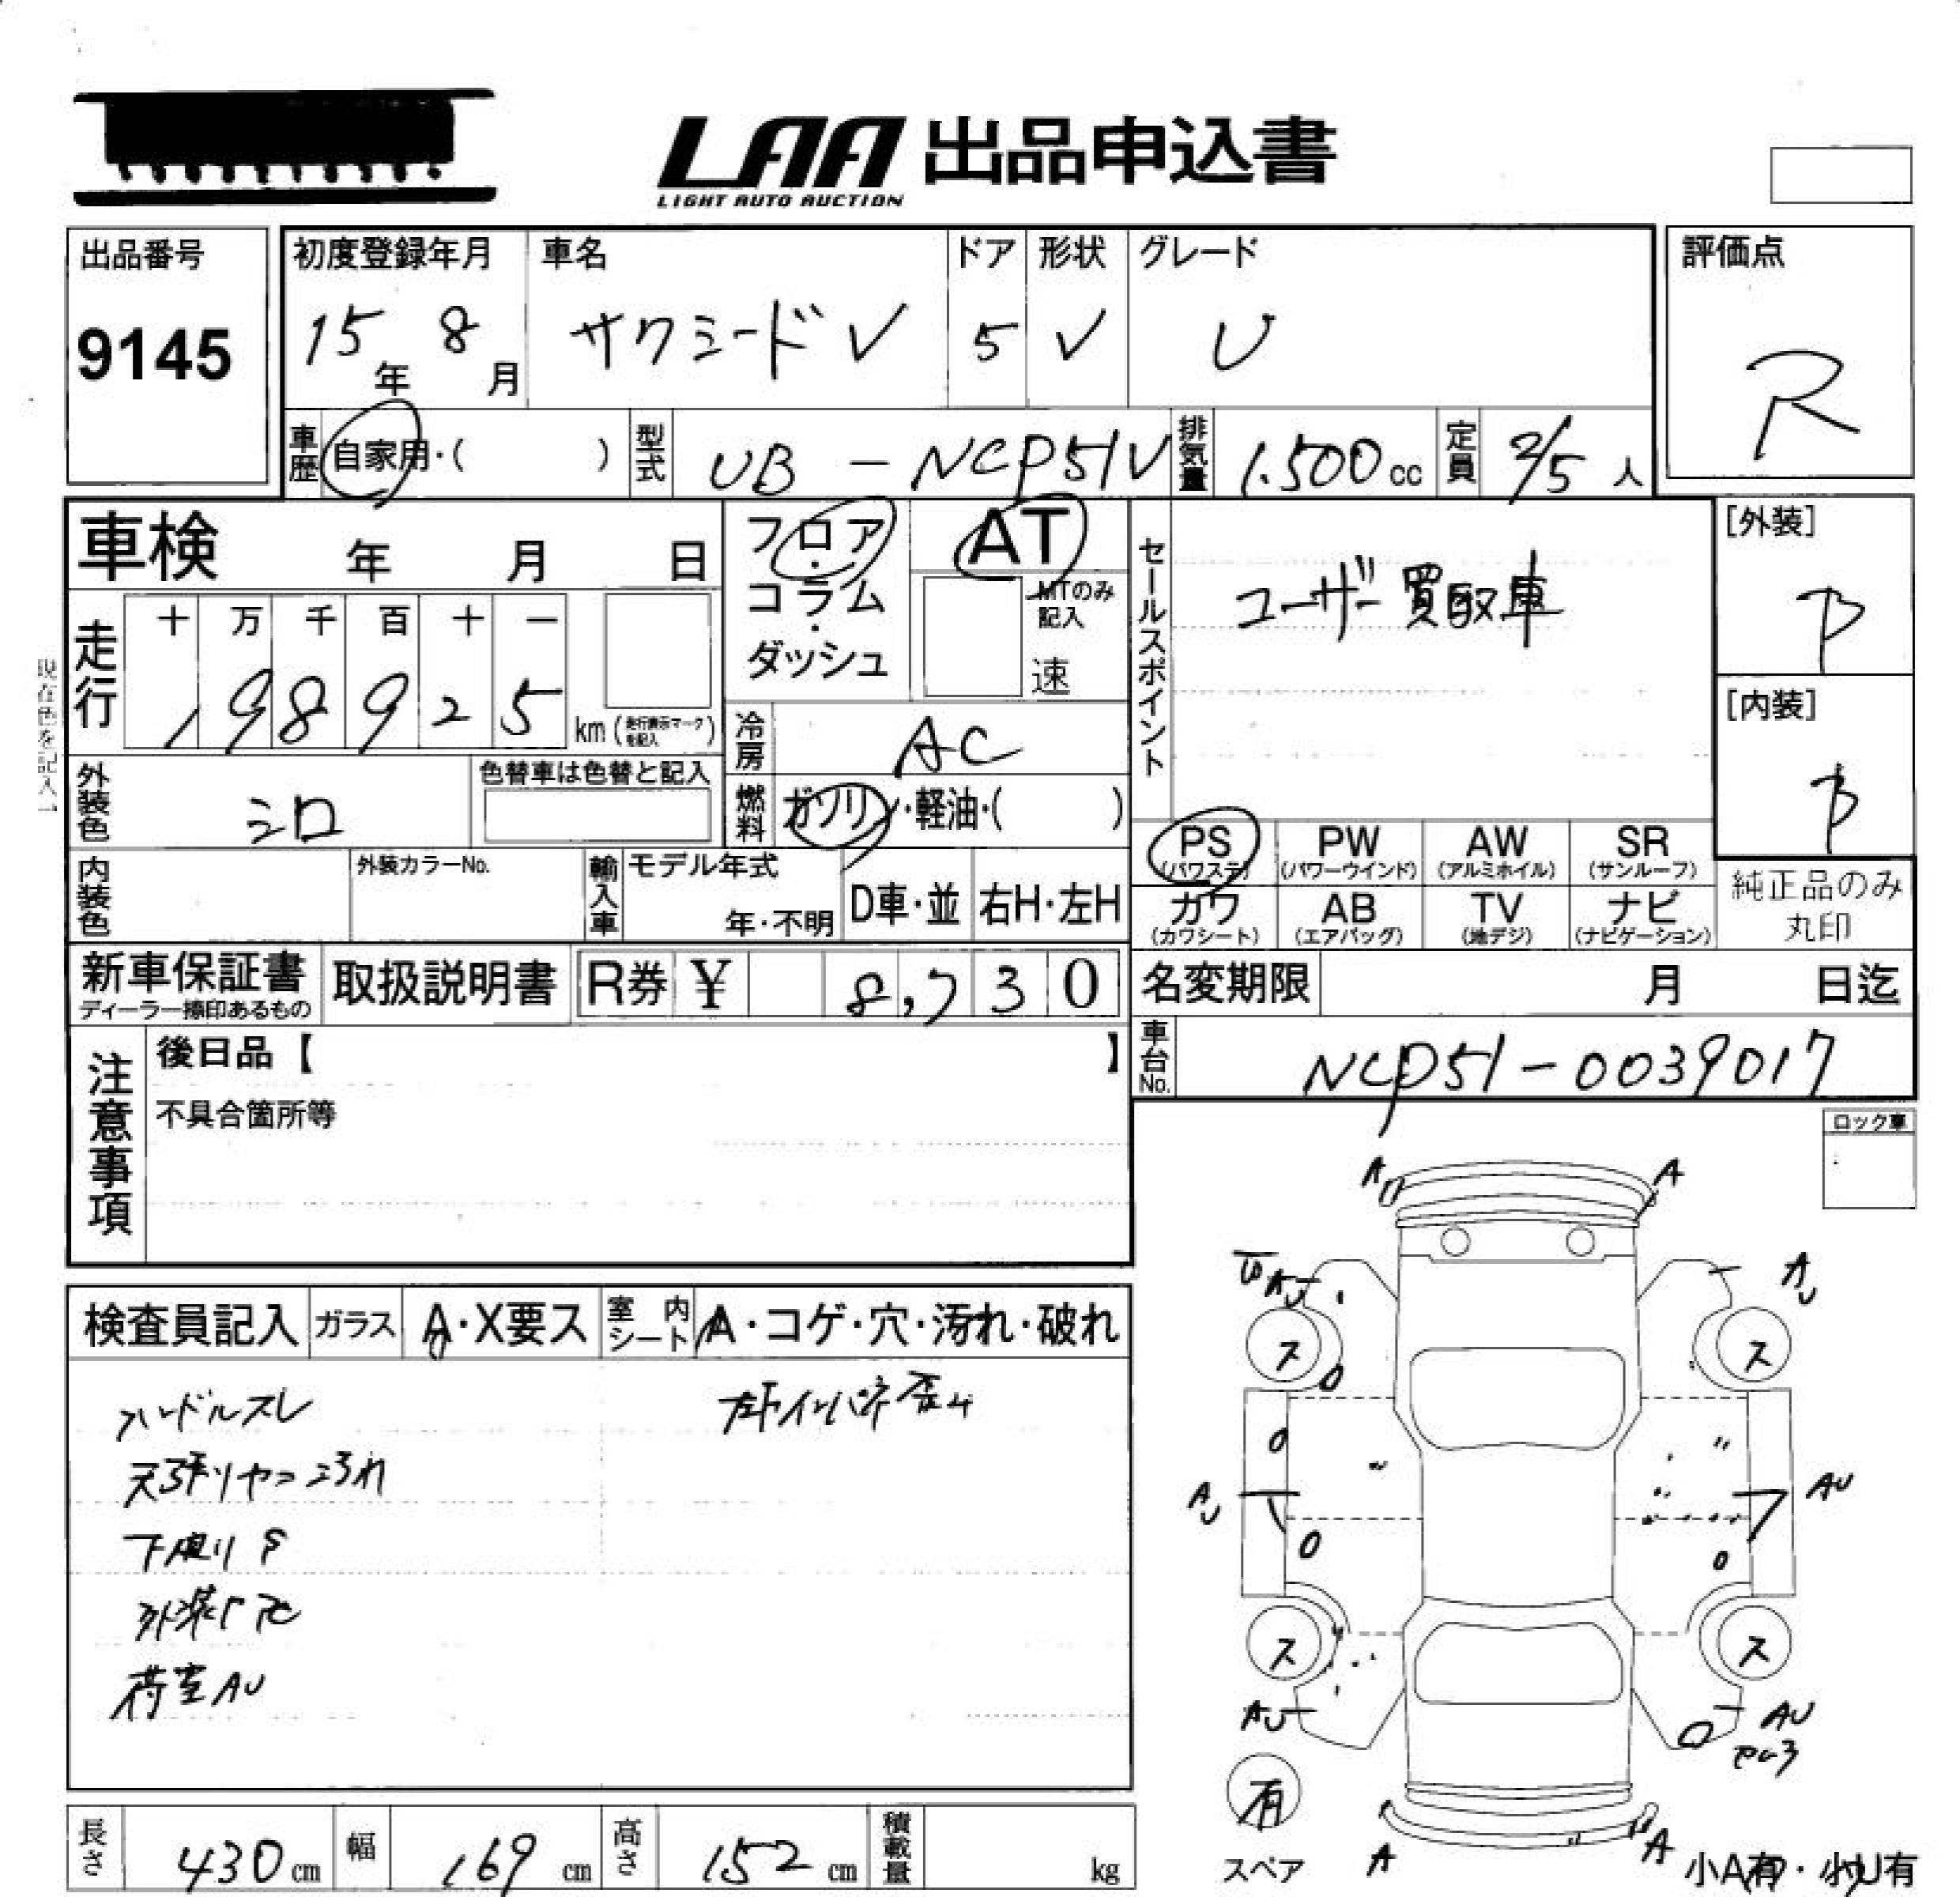 LAA 出品申込書
LIGHT AUTO AUCTION
出品番号
9145
初度登録年月
15年 8月
車名
サクシードV
ドア
5
形状
V
グレード
U
評価点
R
車歴 自家用・( )
型式 UB - NCP51V
排気量 1.500 cc
定員 2/5 人
車検 年 月 日
フロア・コラム・ダッシュ
AT
MTのみ記入
速
走行
十 万 千 百 十 一
198925 km (走行表示マークを記入)
現在色を記入
冷房 AC
外装色 シロ
色替車は色替と記入
燃料 ガソリン・軽油・( )
セールスポイント
ユーザー買取車
[外装]
B
[内装]
B
PS (パワステ)
PW (パワーウインド)
AW (アルミホイル)
SR (サンルーフ)
カワ (カワシート)
AB (エアバッグ)
TV (地デジ)
ナビ (ナビゲーション)
純正品のみ丸印
内装色
外装カラーNo.
輸入車
モデル年式
年・不明
D車・並
右H・左H
新車保証書
ディーラー捺印あるもの
取扱説明書
R券 ¥ 8,730
名変期限 月 日迄
車台No. NCP51-0039017
注意事項
後日品【 】
不具合箇所等
ロック車
検査員記入
ガラス A・X要ス
室内シート A・コゲ・穴・汚れ・破れ
ハンドルスレ
天張りヤニ汚れ
下廻りS
荷室AU
A A
AU
AU
ス ス
AU AU
ス ス
AU AU
有
スペア
A A
小A有・小U有
長さ 430 cm
幅 169 cm
高さ 152 cm
積載量 kg